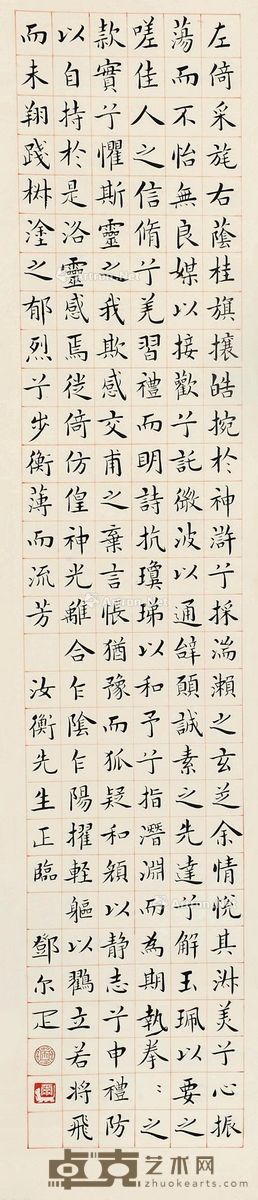 左倚采旄右蔭桂旗攘皓捥於神滸兮採湍瀨之玄芝余情悅其淋美兮心振
蕩而不怡無良媒以接歡兮託微波以通辝願誠素之先達兮解玉珮以要之
嗟佳人之信脩兮羌習禮而明詩抗瓊珶以和予兮指潛淵而為期執拳〻之
款實兮懼斯靈之我欺感交甫之棄言悵猶豫而狐疑和顏以静志兮申禮防
以自持於是洛靈感焉徙倚仿偟神光離合乍陰乍陽擢輕軀以鸖立若將飛
而未翔踐椒塗之郁烈兮步衡薄而流芳
汝衡先生正臨
鄧尔疋
卓克艺术网
zhuokearts.com